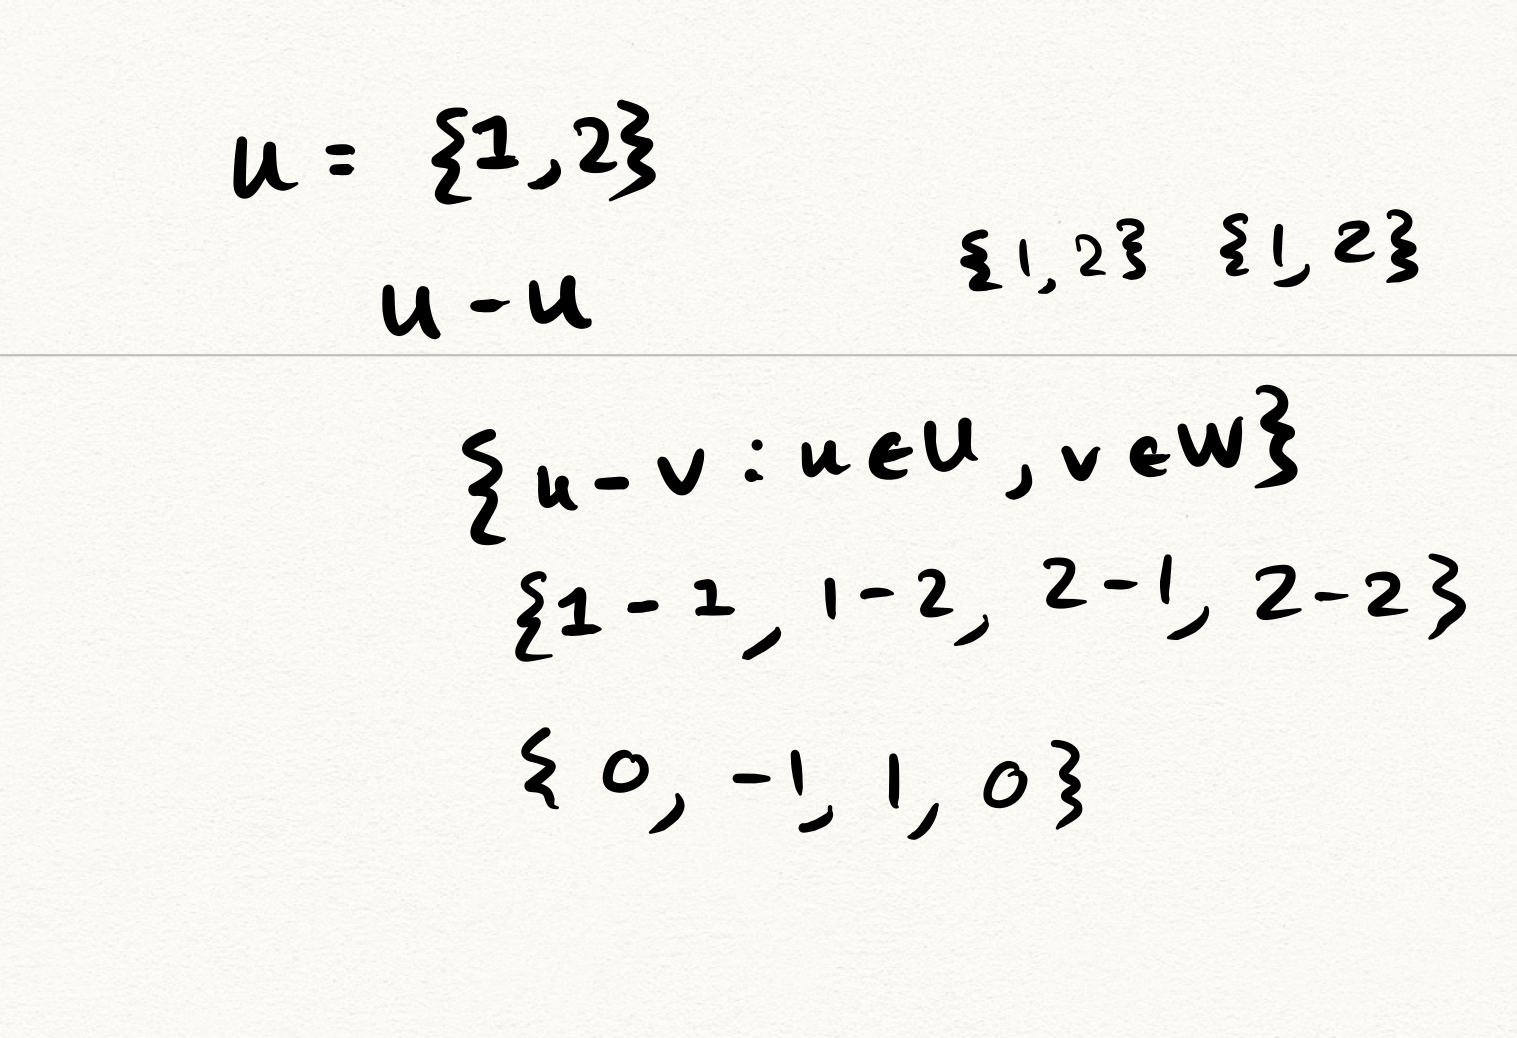 U = {1,2}
{1,2} {1,2}
U - U
{u - v : u ∈ U, v ∈ W}
{1 - 1, 1 - 2, 2 - 1, 2 - 2}
{0, -1, 1, 0}